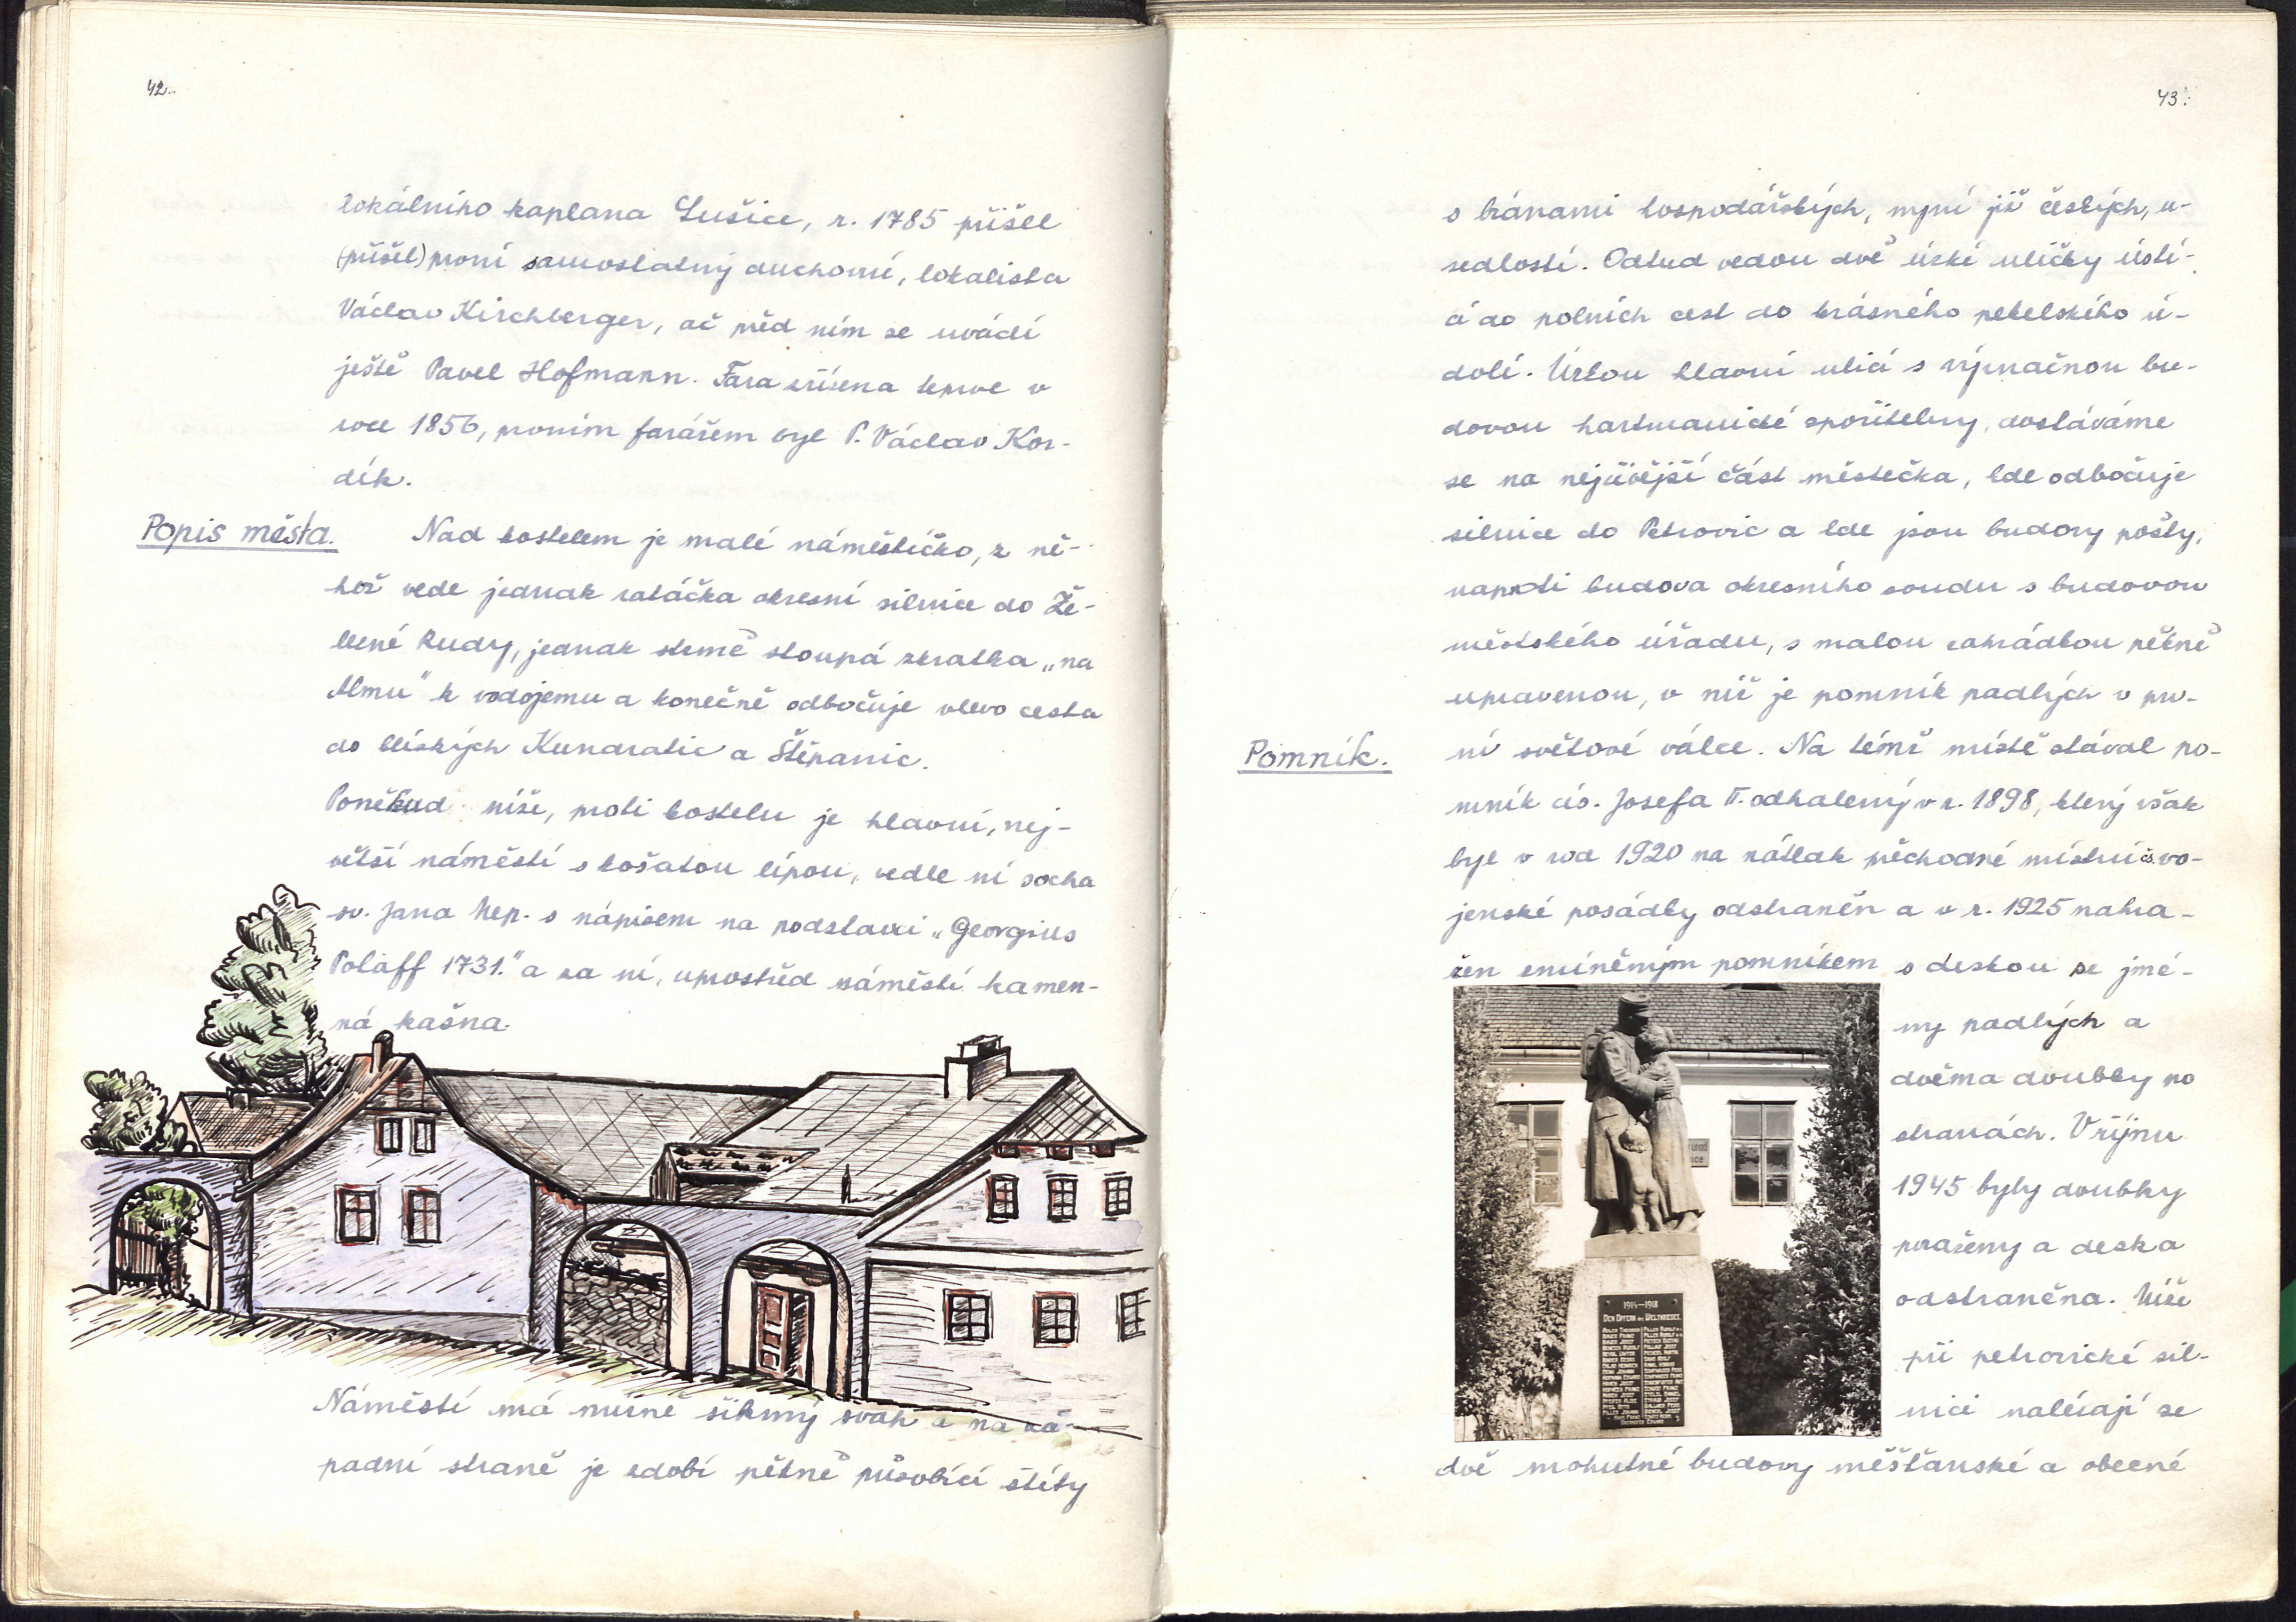 42.
lokálního kaplana Sušice, r. 1785 přišel
(přišel) první samostatný duchovní, lokalista
Václav Kirchberger, ač před ním se uvádí
ještě Pavel Hofmann. Fara zřízena teprve v
roce 1856, prvním farářem byl P. Václav Kor-
dík.
Popis města.
Nad kostelem je malé náměstíčko, z ně-
hož vede jednak zatáčka okresní silnice do Že-
lezné Rudy, jednak strmě stoupá zkratka „na
Almu" k vodojemu a konečně odbočuje vlevo cesta
do blízkých Kundratic a Štěpanic.
Poněkud níže, proti kostelu je hlavní, nej-
větší náměstí s košatou lípou, vedle ní socha
sv. Jana Nep. s nápisem na podstavci „Georgius
Polaff 1731." a za ní, uprostřed náměstí kamen-
ná kašna.
Náměstí má mírně šikmý svah a na zá-
padní straně je zdobí pěkně působící štíty
43.
s bránami hospodářských, nyní již českých, u-
sedlostí. Odtud vedou dvě úzké uličky ústí-
cí do polních cest do krásného pekelského ú-
dolí. Úzkou hlavní ulicí s výpračnou bu-
dovou hartmanické spořitelny, dostáváme
se na nejživější část městečka, kde odbočuje
silnice do Petrovic a kde jsou budovy pošty,
naproti budova okresního soudu s budovou
městského úřadu, s malou zahrádkou pěkně
upravenou, v níž je pomník padlých v prv-
Pomník.
ní světové válce. Na témž místě stával po-
mník cís. Josefa II. odhalený v r. 1898, který však
byl v roce 1920 na nátlak přechodné místní čs. vo-
jenské posádky odstraněn a v r. 1925 nahra-
žen zmíněným pomníkem s deskou se jmé-
ny padlých a
dvěma doubky po
stranách. V říjnu
1945 byly doubky
poraženy a deska
odstraněna. Níže
při petrovické sil-
nici nalézají se
dvě mohutné budovy měšťanské a obecné
1914–1918
DEN OPFERN DES WELTKRIEGES